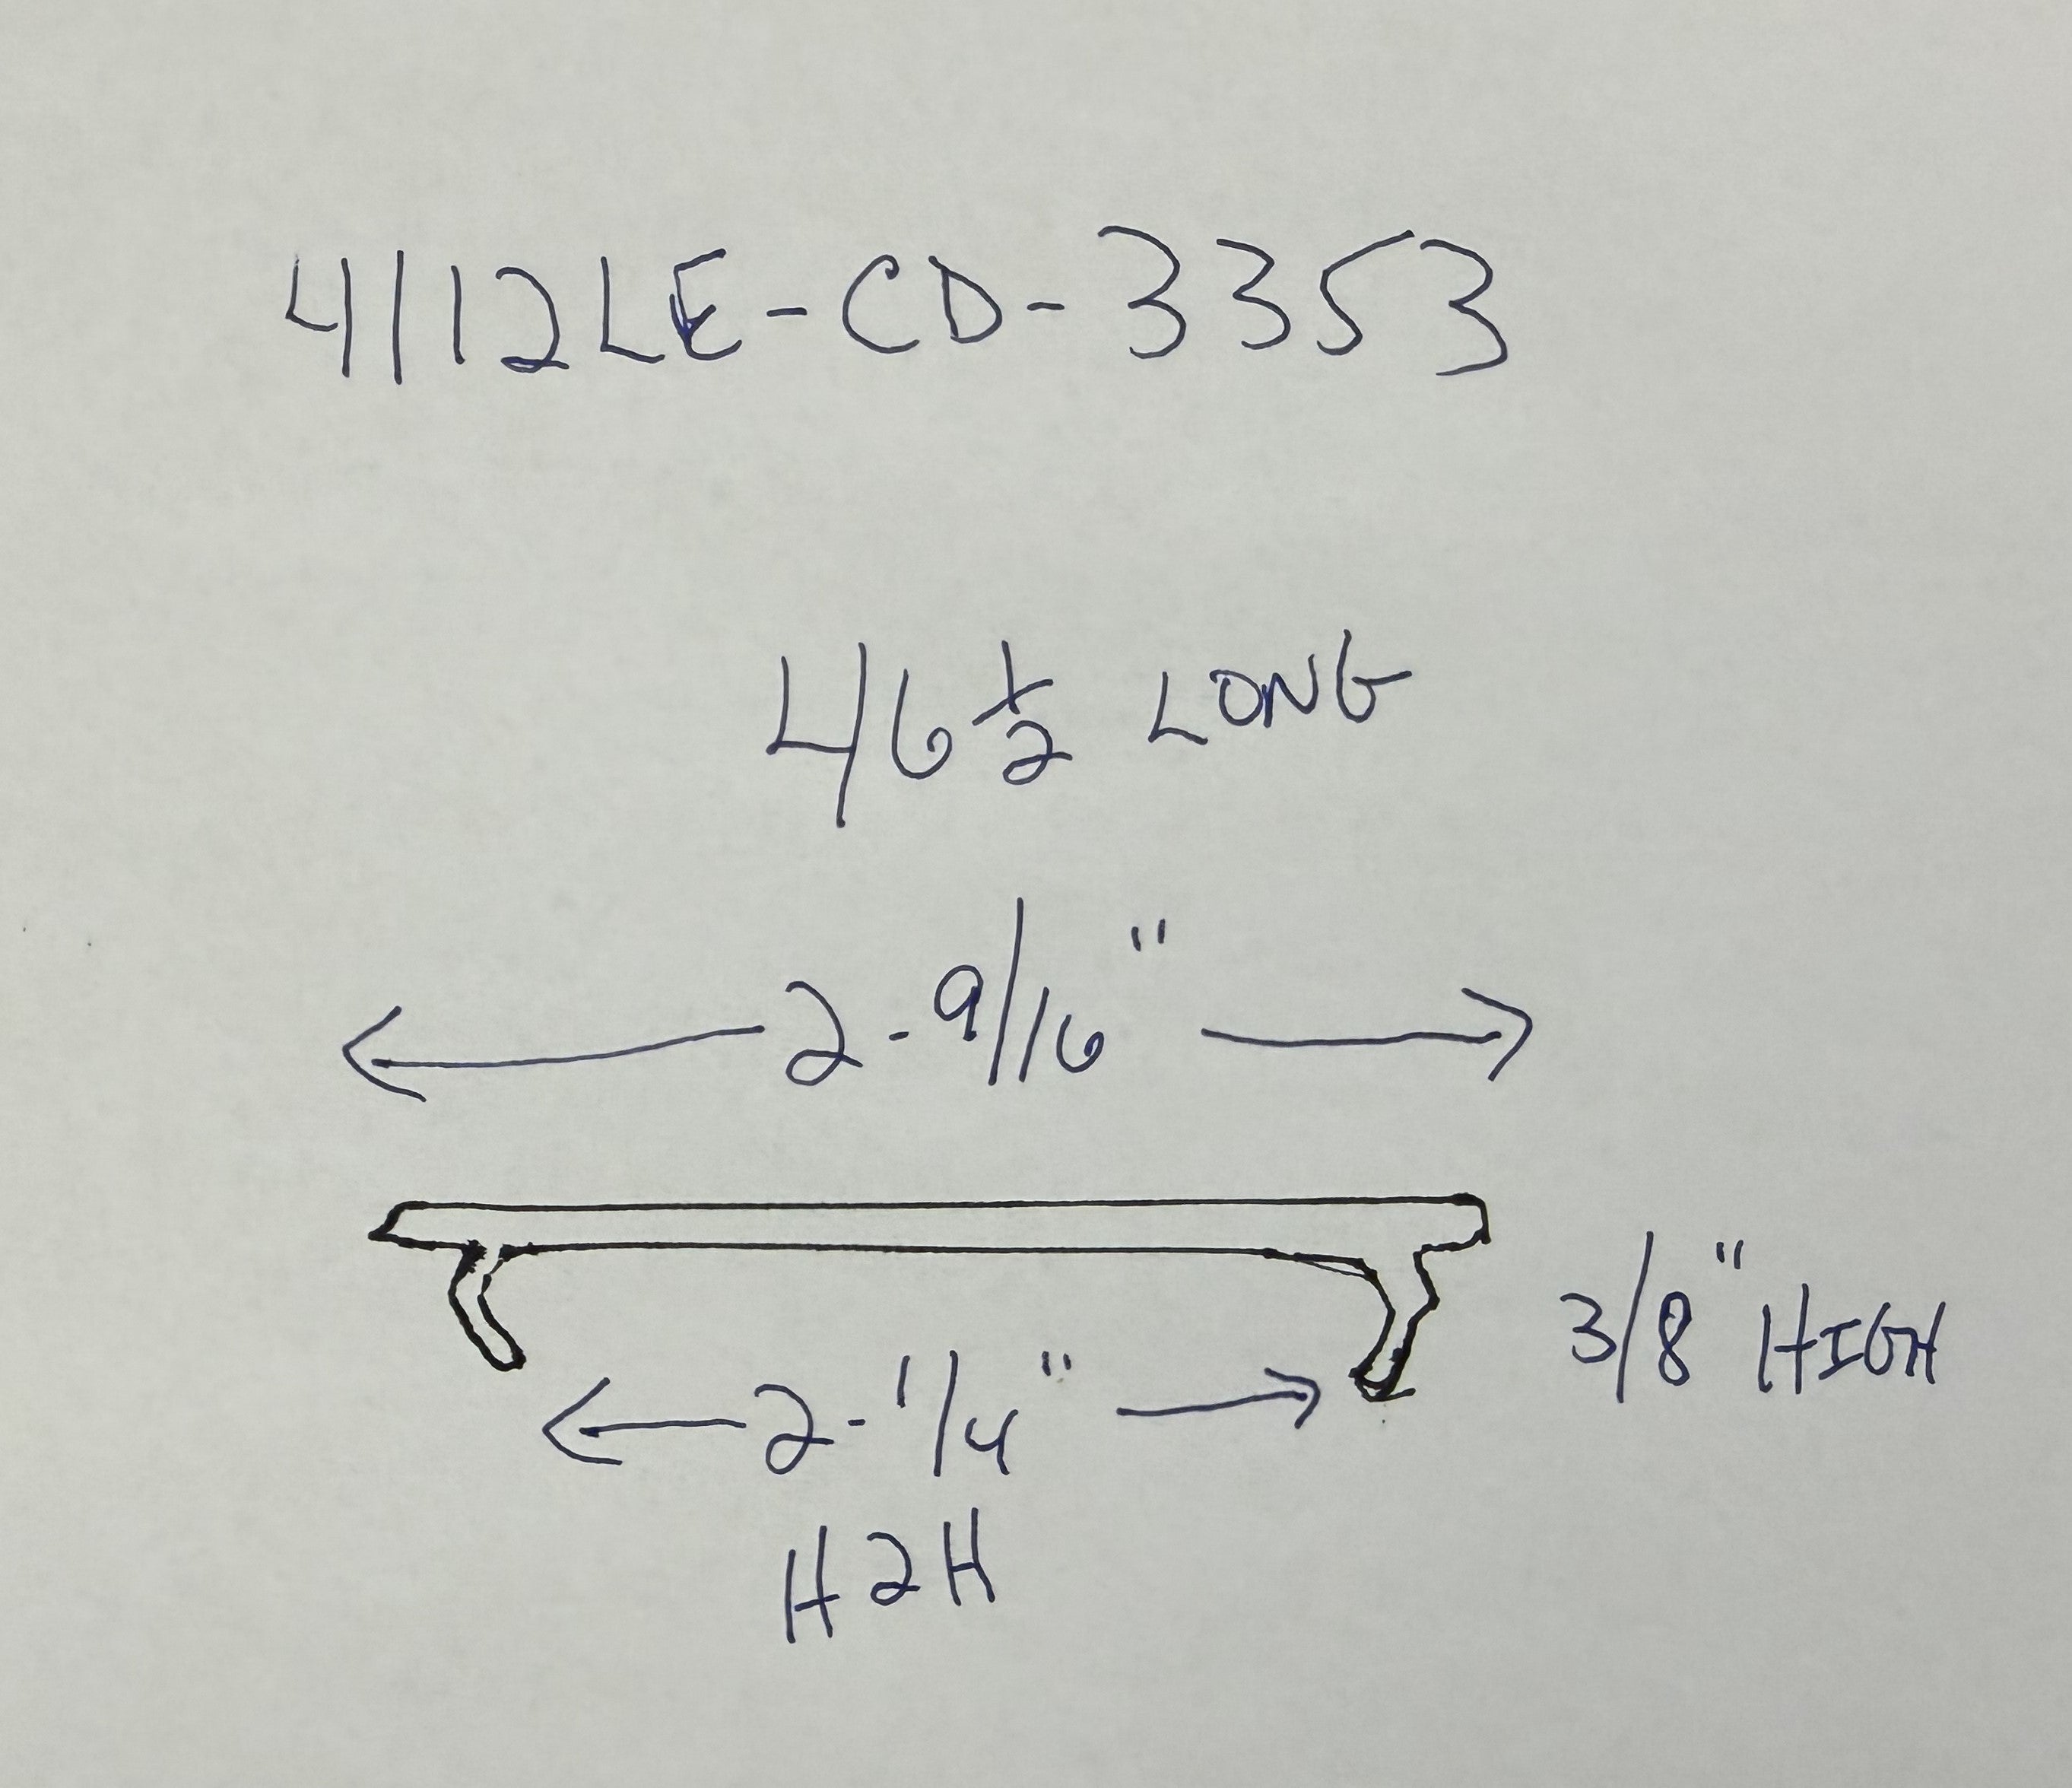 4112LE-CD-3353
46 1/2 LONG
2-9/16"
3/8" HIGH
2-1/4"
H2H